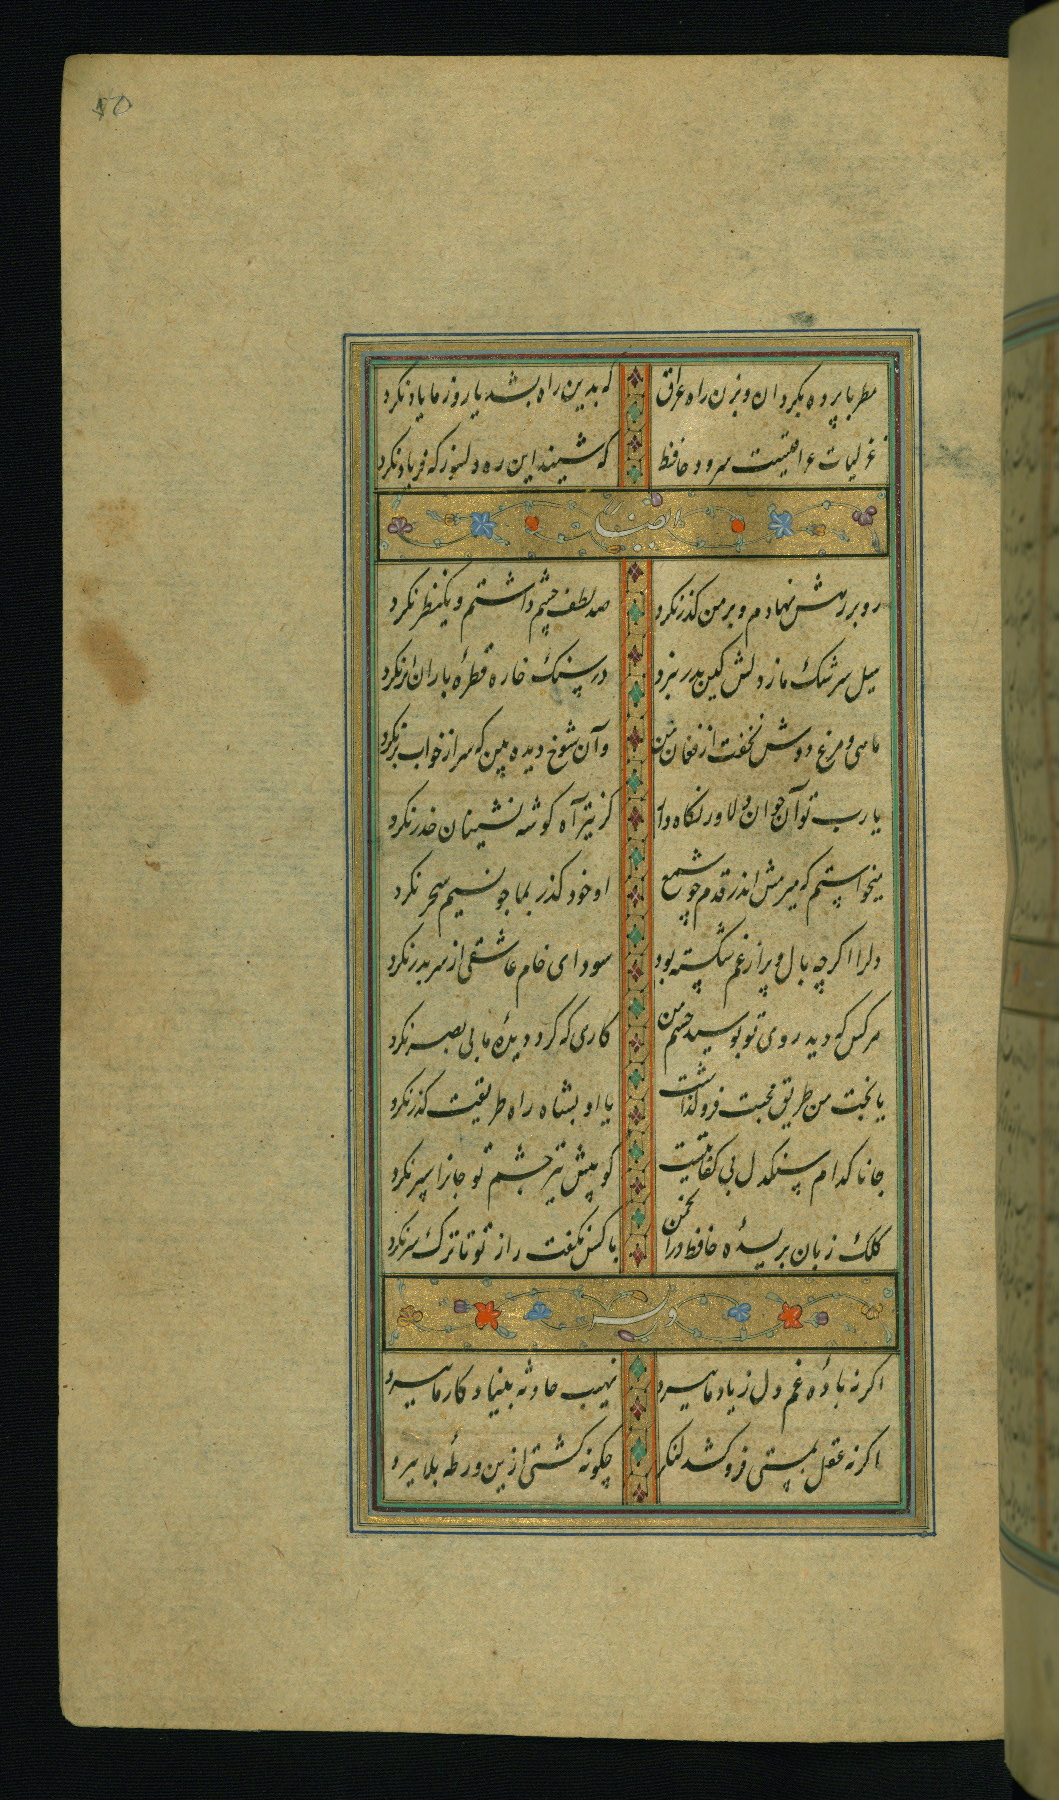 مطربا پرده بگردان و بزن راه عراق که بدین راه بشد یار و ز ما یاد نکرد
غزلیات عراقیست سرود حافظ که شنید این ره دلسوز که فریاد نکرد
ایضا
رو بر رهش نهادم و بر من گذر نکرد صد لطف چشم داشتم و یک نظر نکرد
سیل سرشک ما ز دلش کین بدر نبرد در سنگ خاره قطرهٔ باران اثر نکرد
ماهی و مرغ دوش نخفت از فغان من وآن شوخ دیده بین که سر از خواب بر نکرد
یا رب تو آن جوان دلاور نگاه دار کز تیر آه گوشه نشینان حذر نکرد
میخواستم که میرمش اندر قدم چو شمع او خود گذر بما چو نسیم سحر نکرد
دلرا اگرچه بال و پر از غم شکسته بود سودای خام عاشقی از سر بدر نکرد
هر کس که دید روی تو بوسید چشم من کاری که کرد دیدهٔ ما بی بصر نکرد
یا بخت من طریق محبت فرو گذاشت یا او بشاه راه طریقت گذر نکرد
جانا کدام سنگدل بی کفایتیست کو پیش تیر چشم تو جانرا سپر نکرد
کلک زبان بریدهٔ حافظ در انجمن با کس نگفت راز تو تا ترک سر نکرد
وله
اگر نه بادهٔ غم دل ز یاد ما ببرد نهیب حادثه بنیاد کار ما ببرد
اگر نه عقل بمستی فرو کشد لنگر چگونه کشتی ازین ورطهٔ بلا ببرد